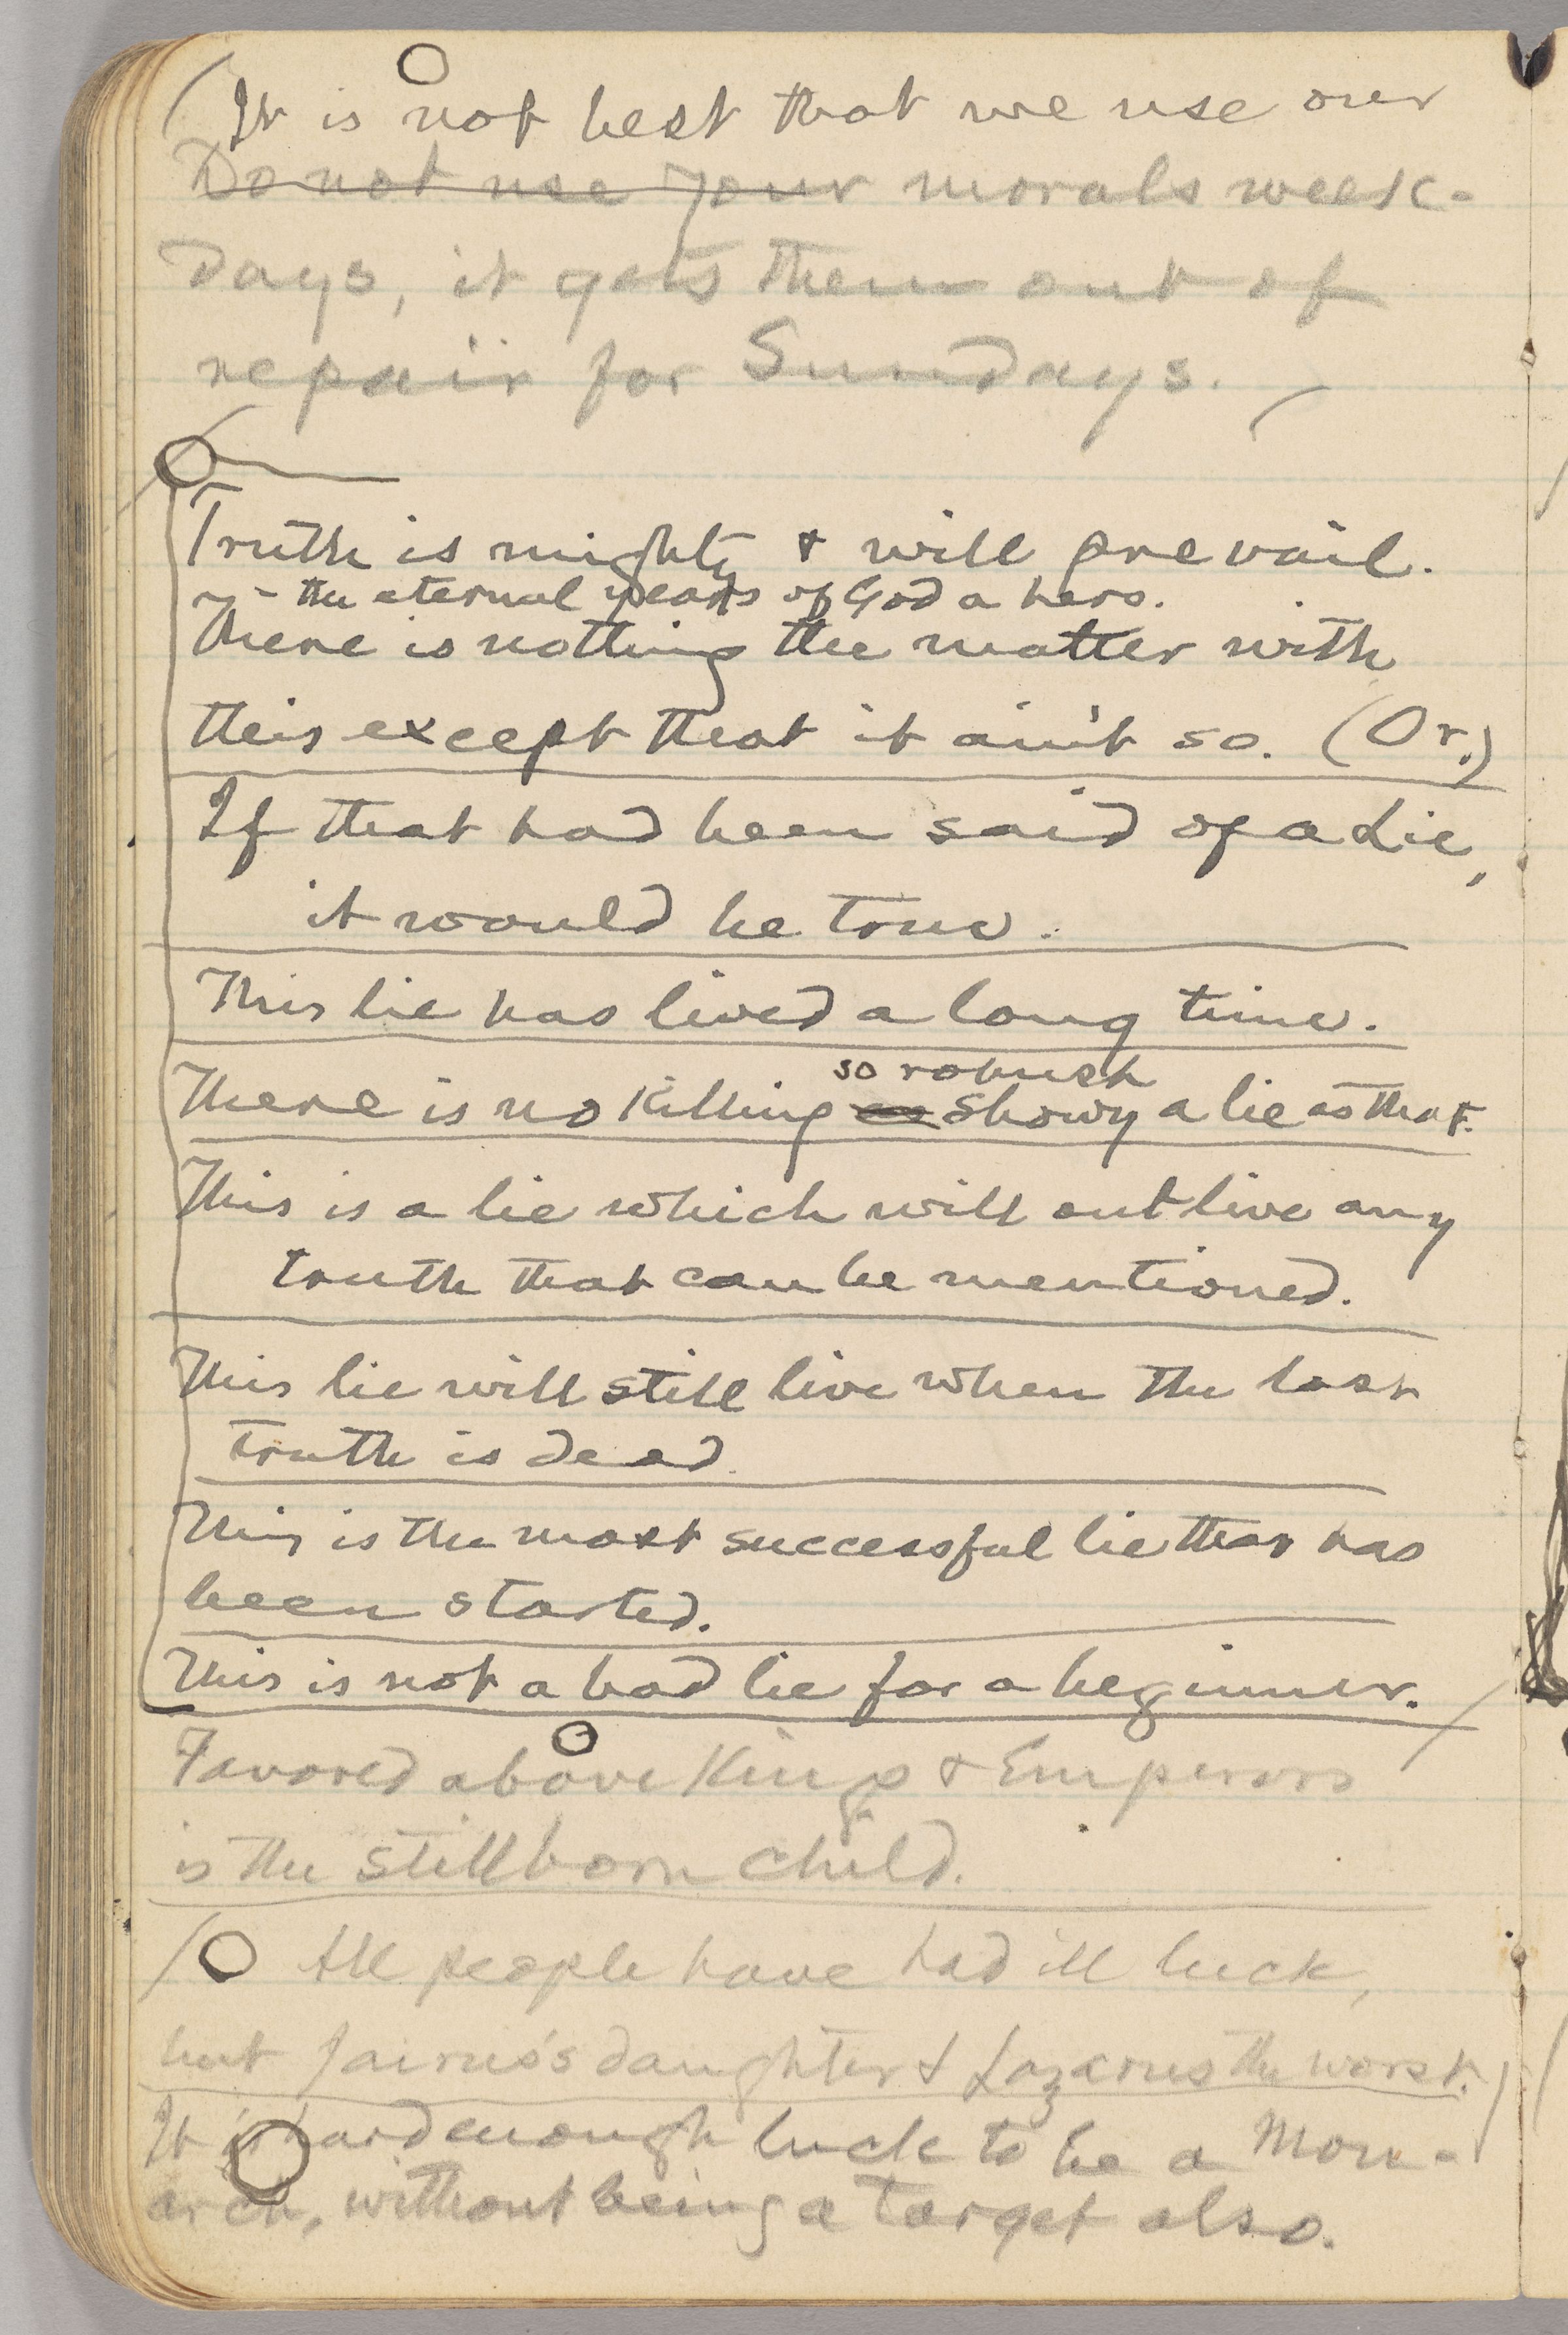 (It is not best that we use our
Do not use your morals week-
days, it gets them out of
repair for Sundays. )
Truth is mighty & will prevail.
- the eternal years of God a hers.
There is nothing the matter with
this except that it ain't so. (Or.)
If that had been said of a Lie,
it would be true.
This lie has lived a long time.
so robust
There is no killing as showy a lie as that.
This is a lie which will outlive any
truth that can be mentioned.
This lie will still live when the last
truth is dead.
This is the most successful lie that has
been started.
This is not a bad lie for a beginner.
Favored above Kings & Emperors
is the stillborn child.
All people have had ill luck,
but Jairus's daughter & Lazarus the worst.)
It is hard enough luck to be a mon-
arch, without being a target also.